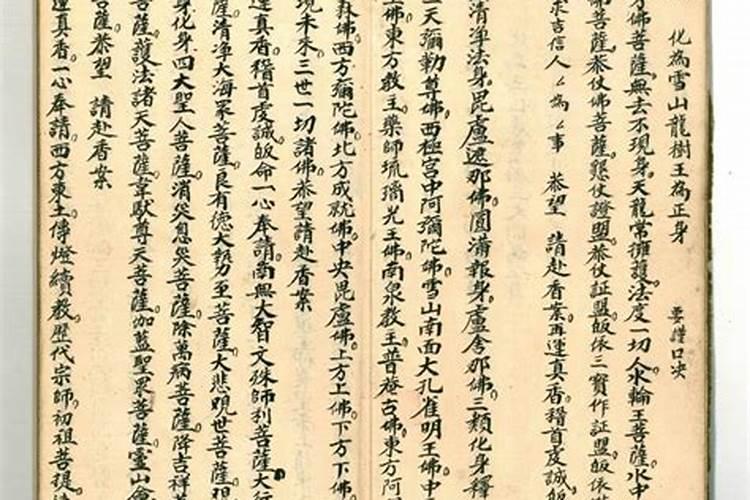 化為雪山龍樹王為正身　要謹口央
方佛菩薩無去不現身天龍常擁護法度一切人水輪王菩薩水中
佛菩薩恭仗佛菩薩懇仗證盟恭仗証盟皈依三寶作証盟皈依
求吉信人〻為〻事　恭望　請赴香案再運真香稽首虔誠皈
清淨法身毘盧遮那佛圓滿報身盧舍那佛三類化身釋
三天彌勒尊佛西極宮中阿彌陀佛雪山南面大孔雀明王佛中
上佛東方教王藥師琉璃光王佛南泉教王普菴古佛東方阿
佛西方彌陀佛北方成就佛中央毘盧佛上方上佛下方下佛
現未來三世一切諸佛恭望請赴香案
運真香稽首虔誠皈命一心奉請南無大智文殊師利菩薩大行
薩清淨大海眾菩薩良有德大勢至菩薩大悲觀世菩薩
身化身四大聖人菩薩消災息災菩薩除萬病菩薩降吉祥菩
菩薩護法諸天菩薩韋馱尊天菩薩伽藍聖眾菩薩靈山會
菩薩恭望　請赴香案
運真香一心奉請西方東土傳燈續教歷代宗師初祖菩提達